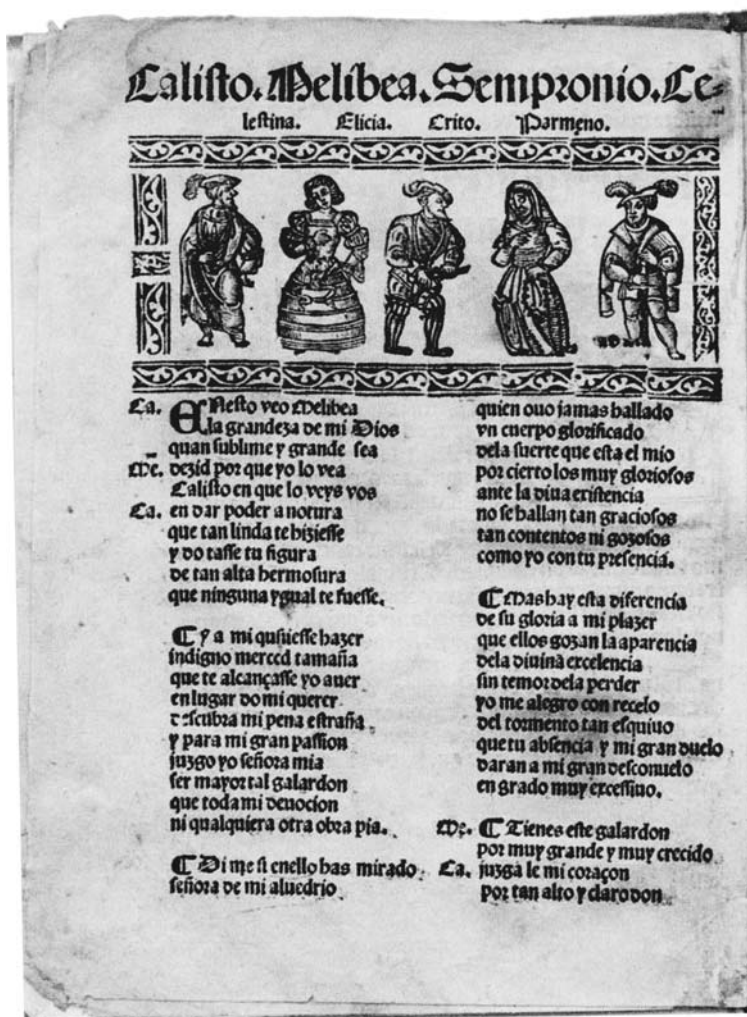 Calisto. Melibea. Sempronio. Ce-
lestina. Elicia. Crito. Parmeno.
Ca. ENesto veo Melibea
la grandeza de mi Dios
quan sublime y grande sea
Me. dezid por que yo lo vea
Calisto en que lo veys vos
Ca. en dar poder a notura
que tan linda te hiziesse
y do tasse tu figura
de tan alta hermosura
que ninguna ygual te fuesse.
¶ Y a mi qusiesse hazer
indigno merced tamaña
que te alcançasse yo auer
en lugar do mi querer
descubra mi pena estraña
y para mi gran passion
juzgo yo señora mia
ser mayor tal galardon
que toda mi deuocion
ni qualquiera otra obra pia.
¶ Di me si enello has mirado
señora de mi aluedrio
quien ouo jamas hallado
vn cuerpo glorificado
dela suerte que esta el mio
por cierto los muy gloriosos
ante la diua existencia
no se hallan tan graciosos
tan contentos ni gozosos
como yo con tu presencia.
¶ Mas hay esta diferencia
de su gloria a mi plazer
que ellos gozan la aparencia
dela diuina excelencia
sin temor dela perder
yo me alegro con recelo
del tormento tan esquiuo
que tu absencia y mi gran duelo
daran a mi gran desconuelo
en grado muy excessiuo.
Me. ¶ Tienes este galardon
por muy grande y muy crecido
Ca. juzga le mi coraçon
por tan alto y claro don